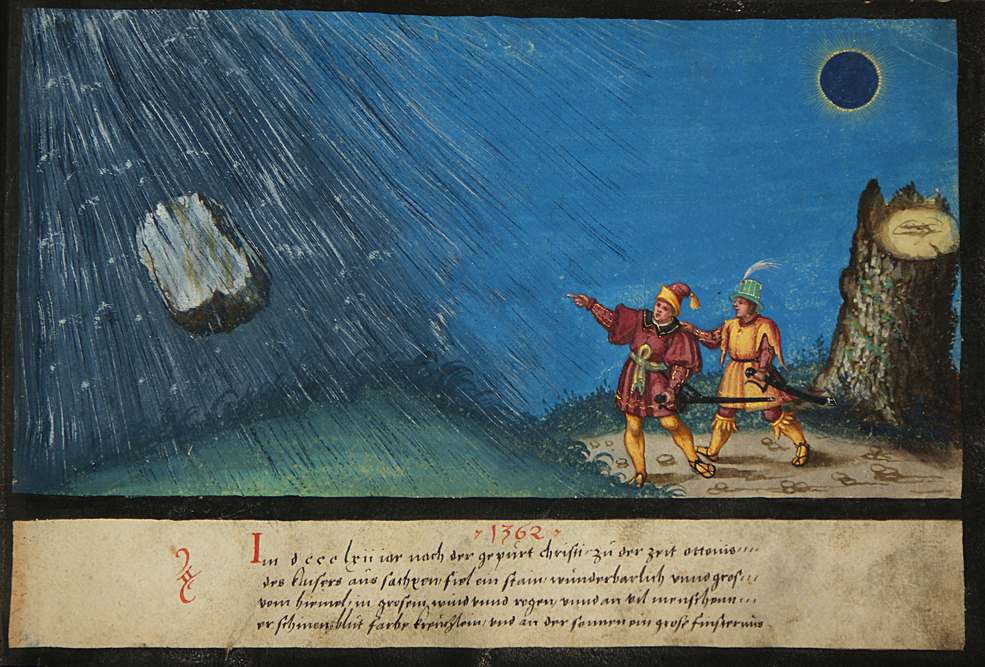 1362
Im dcccclxii iar nach der gepurt christi zu der zeit ottonis
des kaisers aus sachsen fiel ein stain wunderbarlich vnnd gros
vom hiemel in grosem wind vnnd regen vnnd an vil menschenn
erschinen blut farbe kreuchlein vnd an der sonnen ein grose finsternus